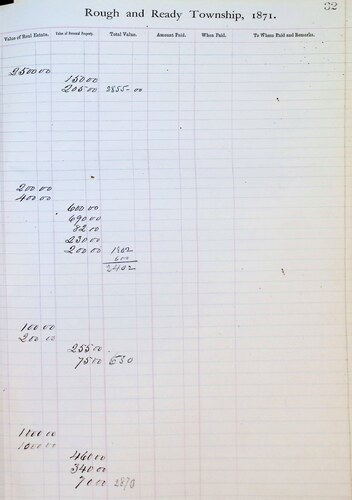 32
Rough and Ready Township, 1871.
Value of Real Estate. Value of Personal Property. Total Value. Amount Paid. When Paid. To Whom Paid and Remarks.
2500 00
150 00
205 00 2855 00
200 00
400 00
600 00
690 00
82 00
230 00
200 00 1802
600
2402
100 00
200 00
255 00
75 00 630
1000 00
1000 00
460 00
340 00
70 00 2870